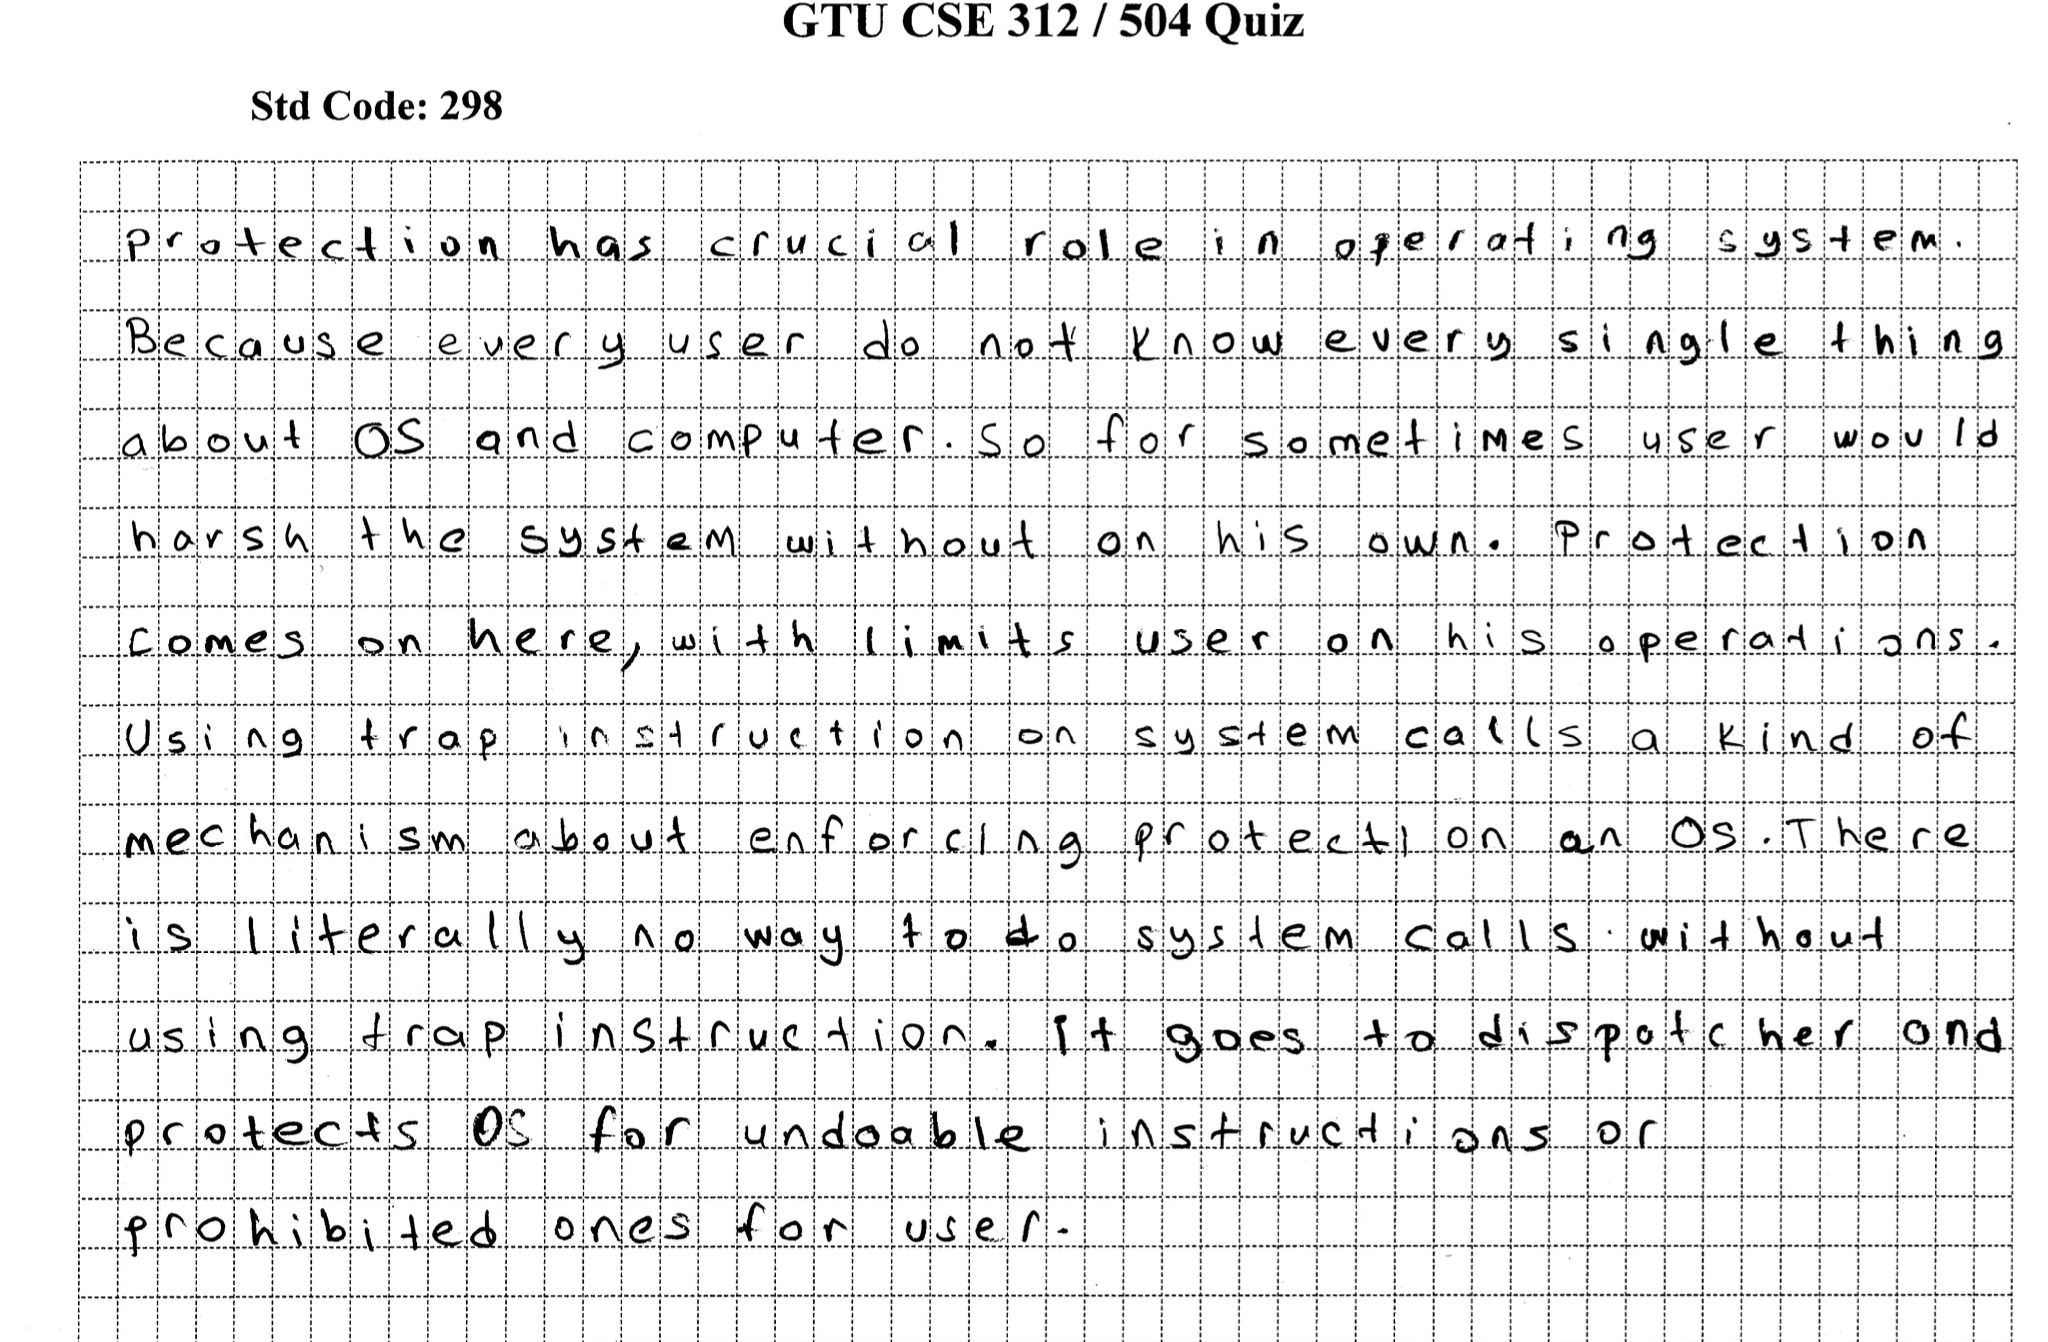 GTU CSE 312 / 504 Quiz
Std Code: 298
Protection has crucial role in operating system.
Because every user do not know every single thing
about OS and computer. So for sometimes user would
harsh the system without on his own. Protection
comes on here, with limits user on his operations.
Using trap instruction on system calls a kind of
mechanism about enforcing protection an OS. There
is literally no way to do system calls without
using trap instruction. It goes to dispatcher and
protects OS for undoable instructions or
prohibited ones for user.